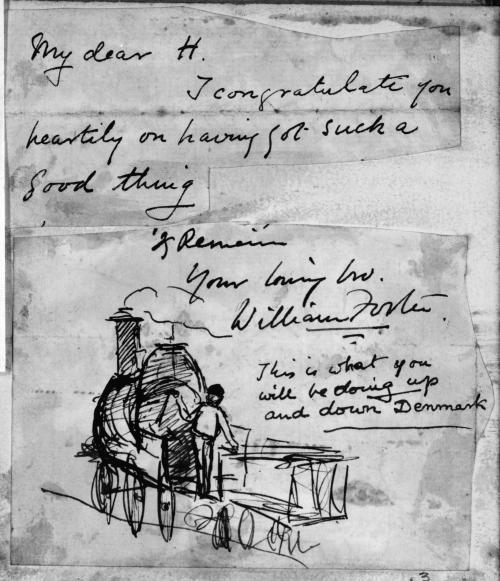 My dear H.
I congratulate you
heartily on having got such a
good thing
& Remain
Your loving bro.
William Foster.
This is what you
will be doing up
and down Denmark
3